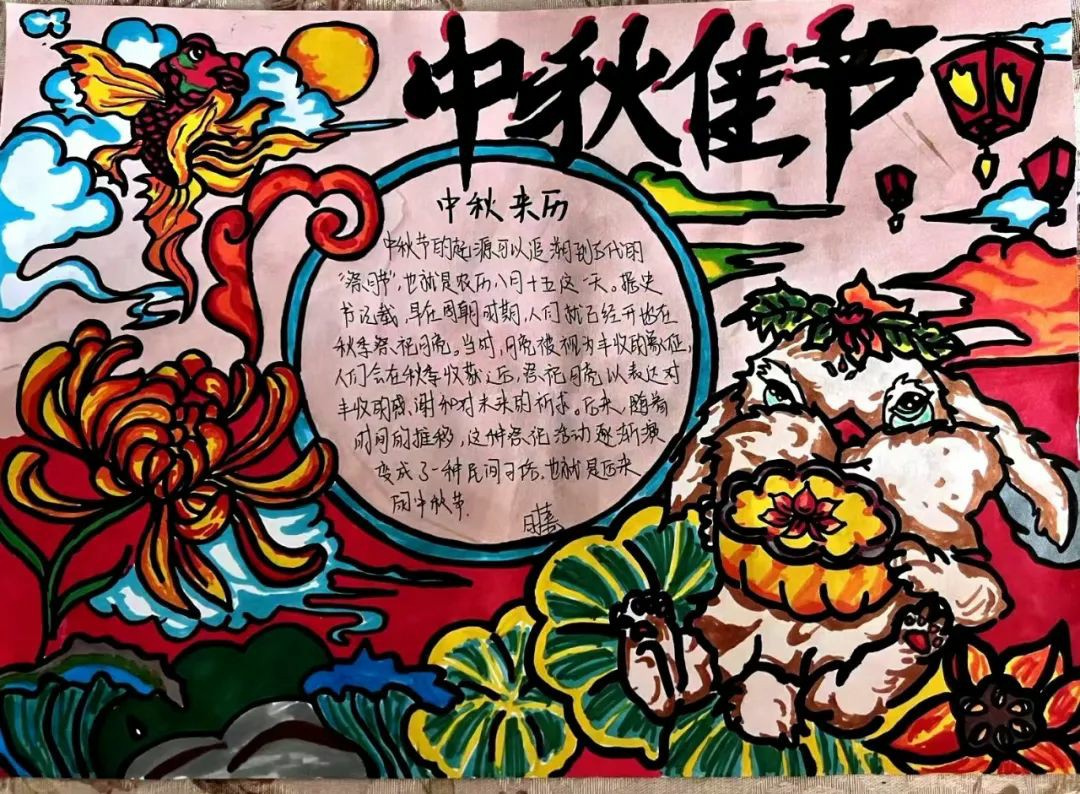 中秋佳节
中秋来历
中秋节的起源可以追溯到古代的
"祭月节"，也就是农历八月十五这一天。据史
书记载，早在周朝时期，人们就已经开始在
秋季祭祀月亮。当时，月亮被视为丰收的象征，
人们会在秋季收获之后，祭祀月亮以表达对
丰收的感谢和对未来的祈求。后来，随着
时间的推移，这种祭祀活动逐渐演
变成了一种民间习俗，也就是后来
的中秋节.